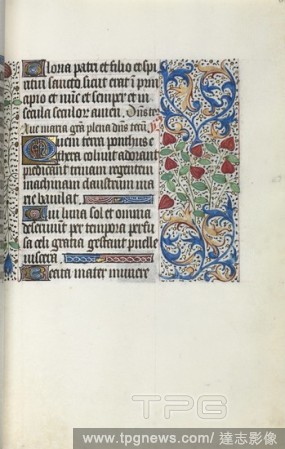 Gloria patri et filio et spi
ritui sancto sicut erat i prin
cipio et nuc et semper et in
secula seculor amen.
Aue maria gra plena dns tecu
Quem terra ponthus e
thera colunt adorant
predicant trinam regentem
machinam claustrum mari
e baiulat.
Cui luna sol et omnia
deseruiunt per tempora perfu
sa celi gratia gestant puelle
viscera.
Beata mater munere
TPG
www.tpgnews.com/ 達志影像